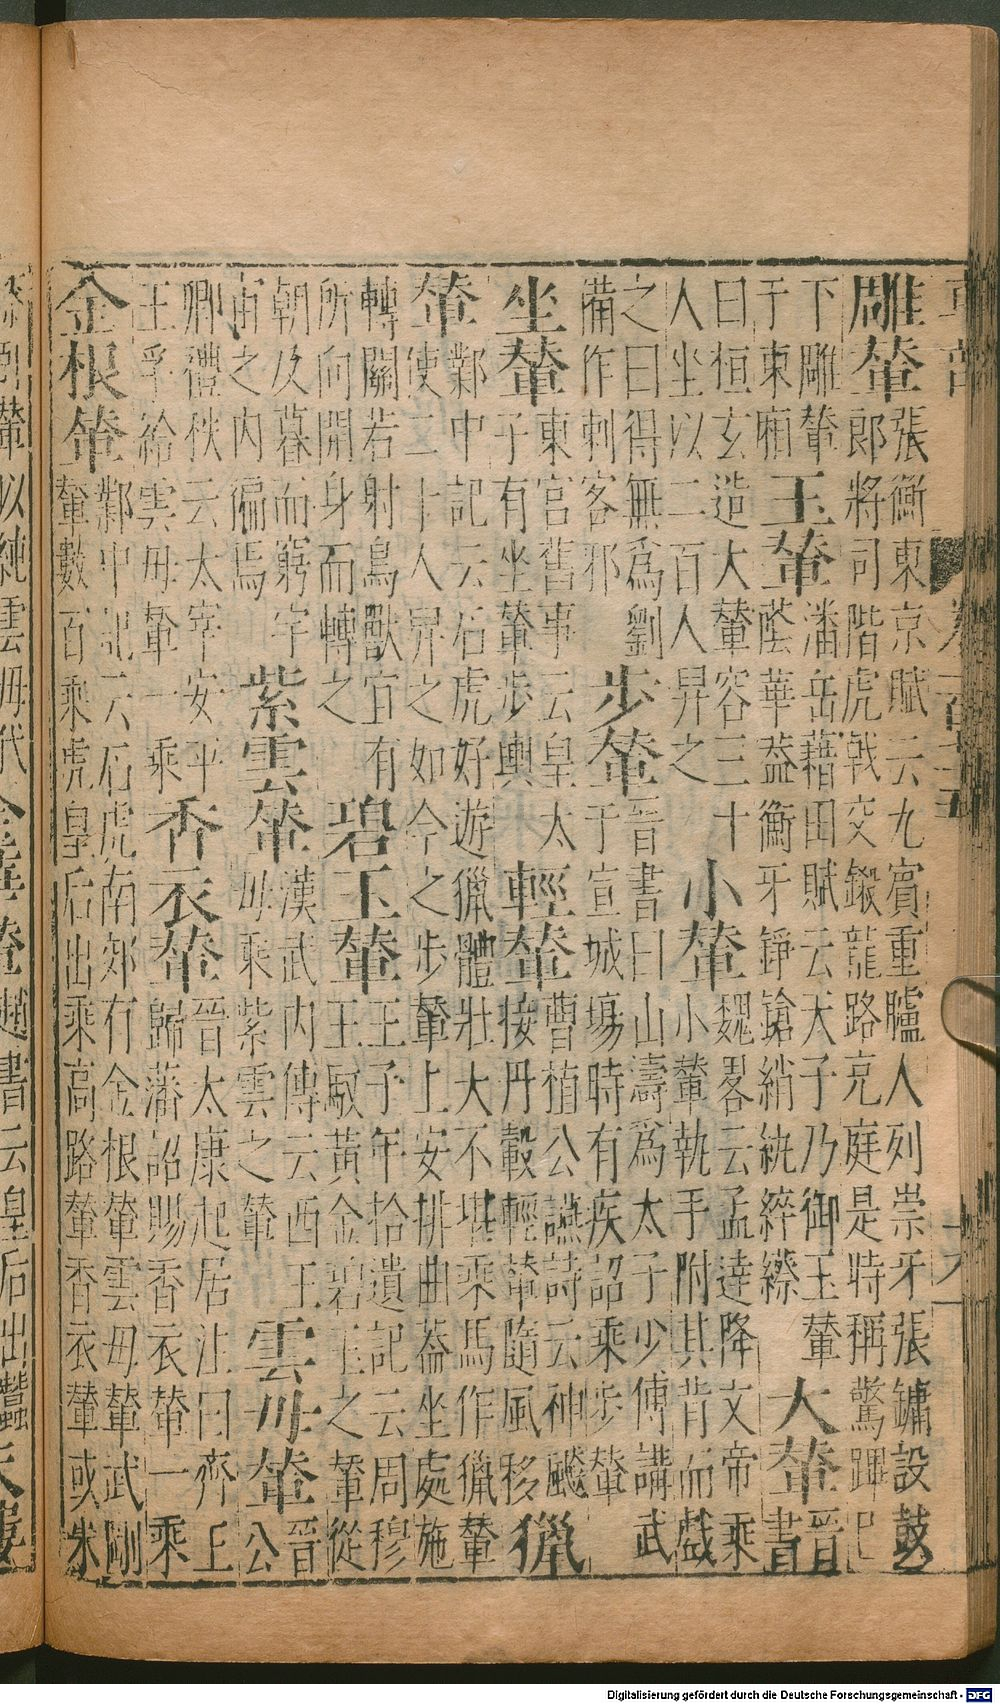 雕輦張衡東京賦云九賓重臚人列崇牙張鏞設鼓
郎將司階虎戟交鎩龍路充庭是時稱警蹕已
下雕輦
于東廂
玉輦潘岳藉田賦云天子乃御玉輦
蔭華葢衡牙錚鎗綃紈綷縩
大輦晉
書
曰桓玄造大輦容三十
人坐以二百人舁之
小輦魏畧云孟達降文帝乘
小輦執手附其背而戲
之曰得無爲劉
備作刺客邪
步輦晉書曰山濤爲太子少傅講武
于宣城塲時有疾詔乘步輦
坐輦東宮舊事云皇太
子有坐輦步輿
輕輦曹植公讌詩云神飈
接丹轂輕輦隨風移
獵
輦鄴中記云石虎好遊獵體壯大不堪乘馬作獵輦
使二十人舁之如今之步輦上安排曲葢坐處施
轉關若射鳥獸宜有
所向開身而轉之
碧玉輦王子年拾遺記云周穆
王馭黃金碧玉之輦從
朝及暮而窮宇
宙之內徧焉
紫雲輦漢武內傳云西王
母乘紫雲之輦
雲母輦晉
公
卿禮秩云太宰安平
王孚給雲母輦一乘
香衣輦晉太康起居注曰齊王
歸藩詔賜香衣輦一乘
金根輦鄴中記云石虎南郊有金根輦雲母輦武剛
輦數百乘虎皇后出乘高路輦香衣輦或朱
輦以純雲母代
輦趙書云皇后出蠶
Digitalisierung gefördert durch die Deutsche Forschungsgemeinschaft - DFG